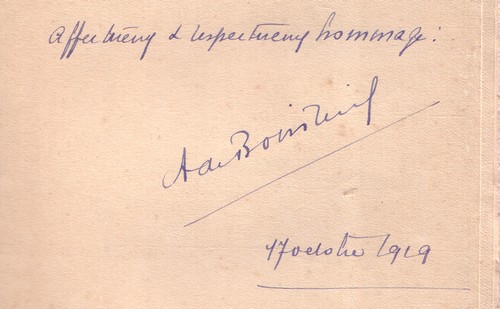 affectueux & respectueux hommage.
A de Boisthieu
17 octobre 1919